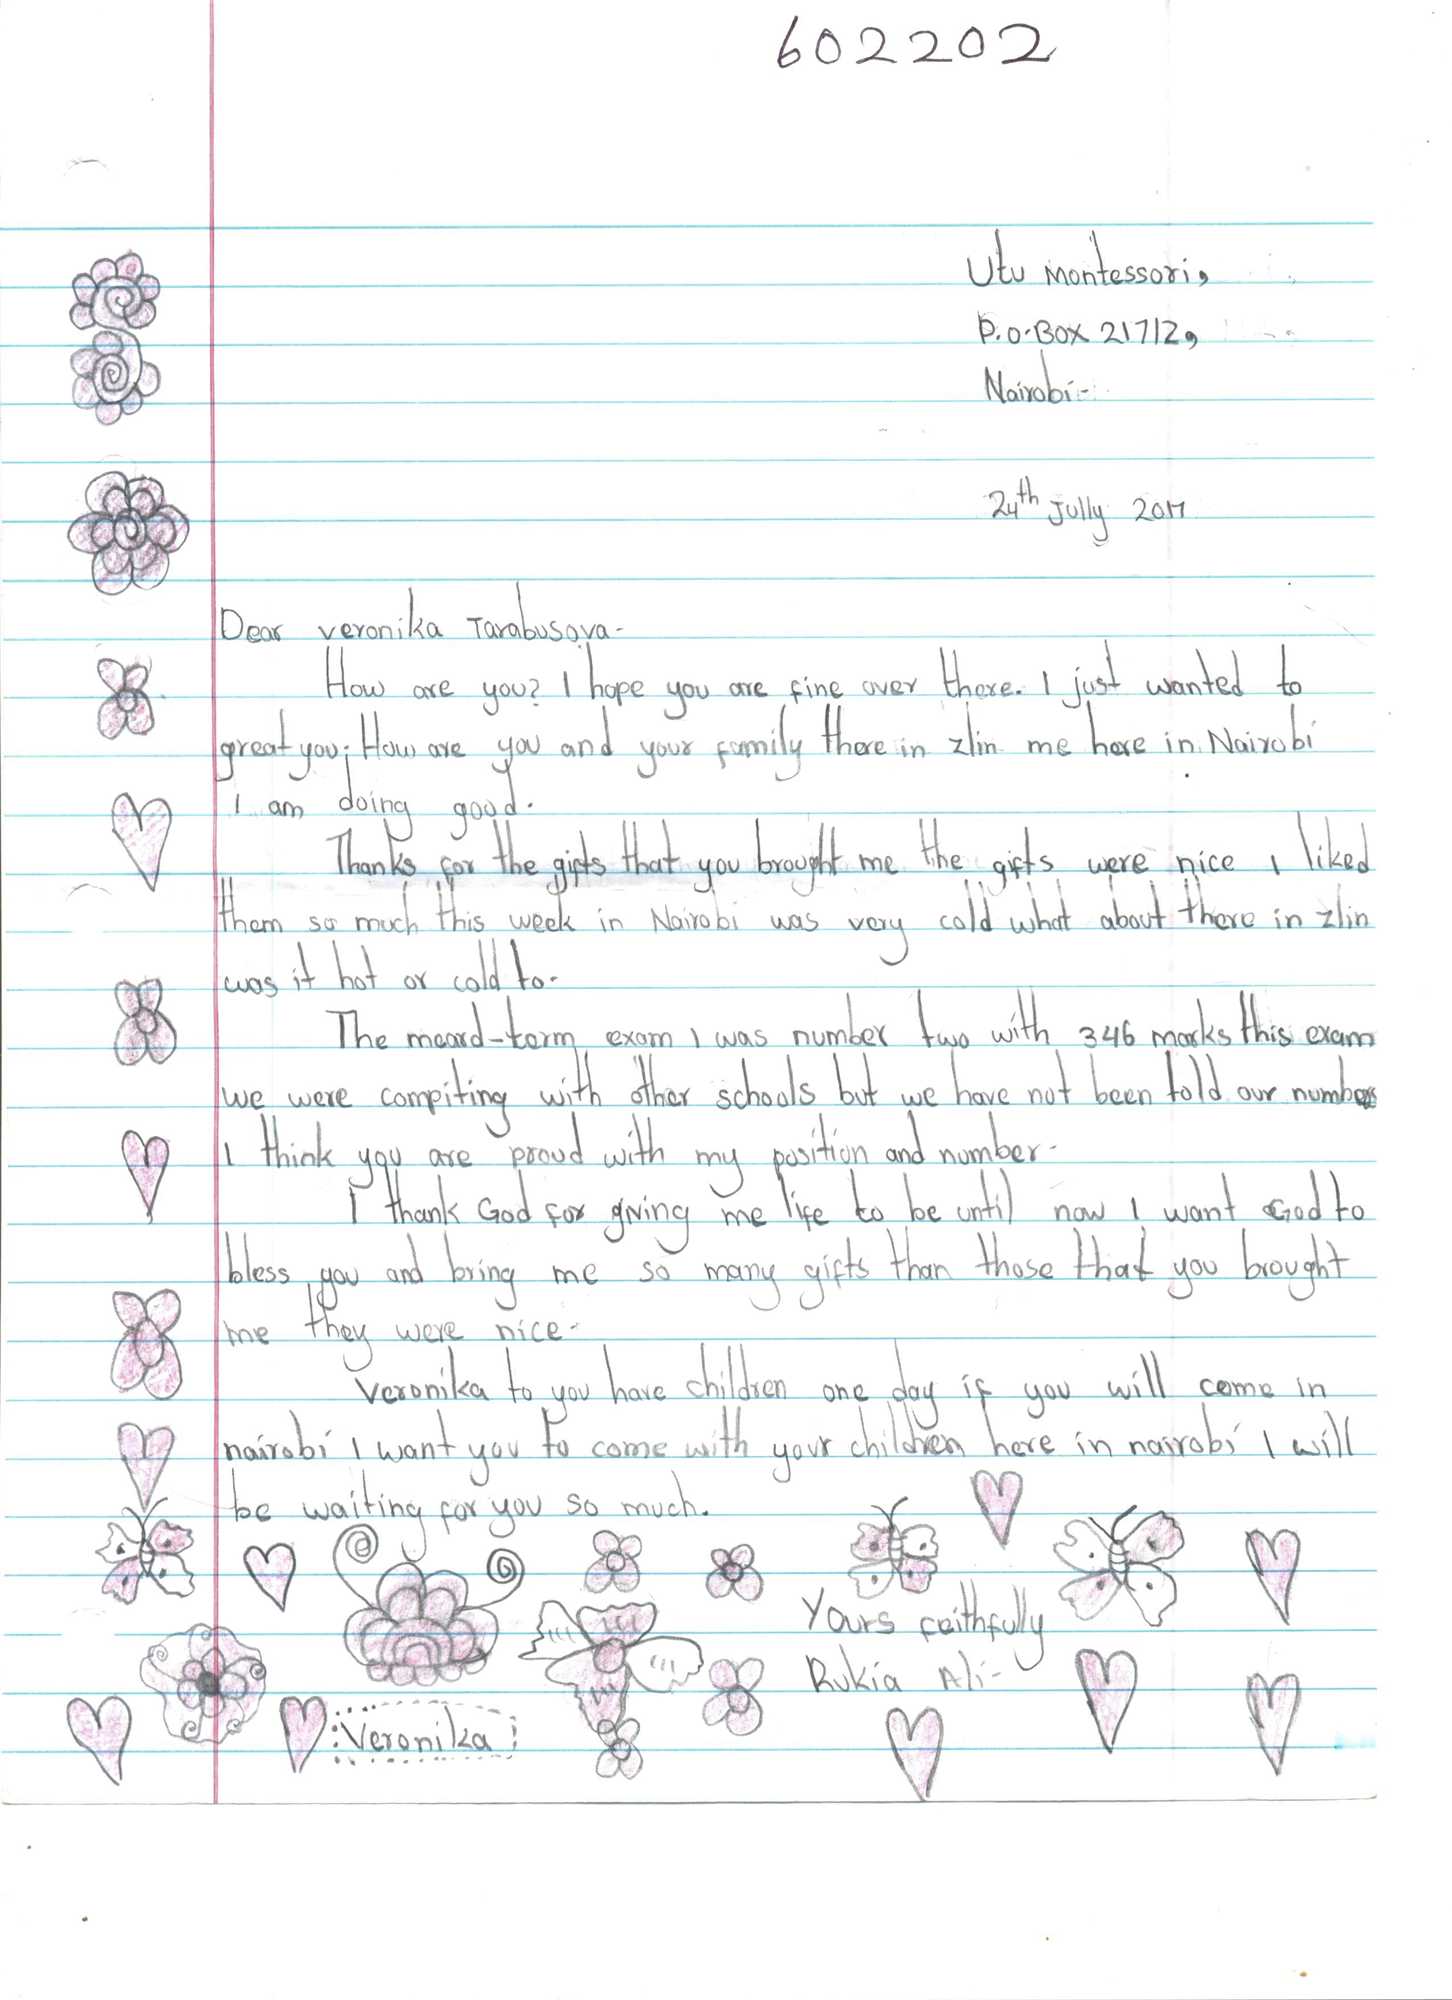 602202
Utu Montessori,
P.o.Box 21712,
Nairobi-
24th Jully 2017
Dear Veronika Tarabusova-
How are you? I hope you are fine over there. I just wanted to
great you; How are you and your family there in zlin me here in Nairobi
I am doing good.
Thanks for the gifts that you brought me the gifts were nice I liked
them so much this week in Nairobi was very cold what about there in zlin
was it hot or cold to-
The meard-term exam I was number two with 346 marks this exam
we were compiting with other schools but we have not been told our numbers
I think you are proud with my position and number-
I thank God for giving me life to be until now I want God to
bless you and bring me so many gifts than those that you brought
me they were nice-
Veronika to you have children one day if you will come in
nairobi I want you to come with your children here in nairobi I will
be waiting for you so much.
Yours faithfully
Rukia Ali-
Veronika